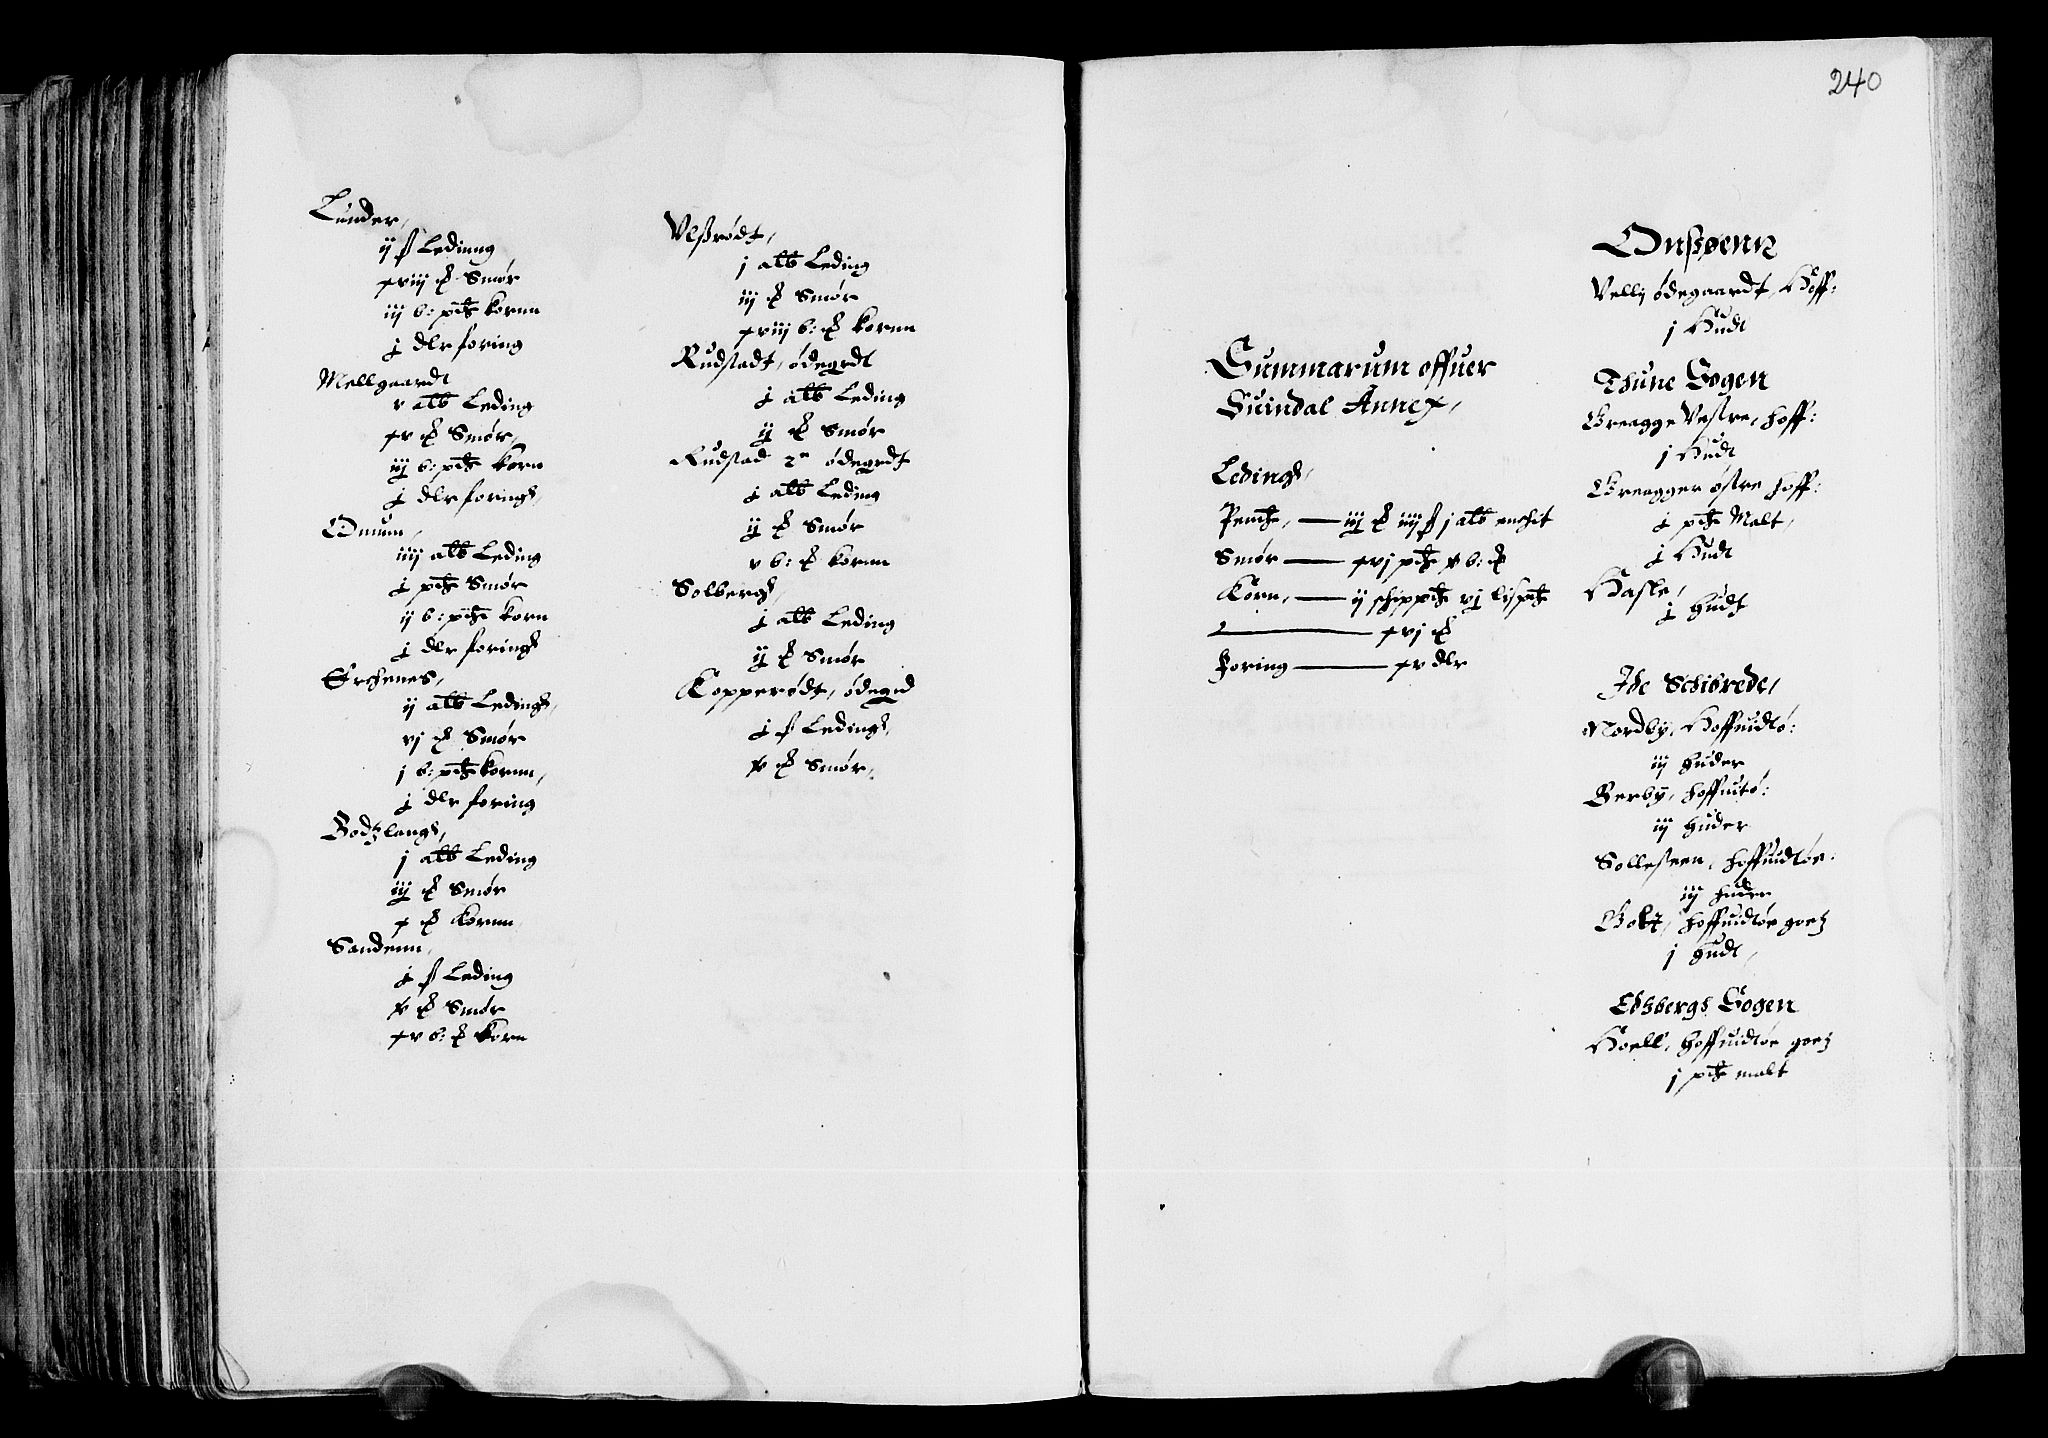 Lunder,
ij ß Lediung
xviij ℔ Smør
iij b: pd kornn
j dlr foring
Mellgaardt
v alb Leding
xv ℔ Smør,
iij b: pd korn
j dlr foring
Omum,
iiij alb Leding
j pd Smør
ij b: pd korn
j dlr foring
Erchenes,
ij alb Leding,
vj ℔ Smør
j b: pd kornn,
j dlr foring
Bodtzlang,
j alb Leding
iij ℔ Smør
x ℔ Kornn
Sandenn,
j ß Leding
x ℔ Smør
xv b: ℔ korn
Vlsrødt,
j alb Leding
iij ℔ Smør
xviij b: ℔ kornn
Rudstadt, ødegrdt
j alb Leding
ij ℔ Smør
Rudstad 2n ødegrdt
j alb Leding
ij ℔ Smør
v b: ℔ kornn
Solberg,
j alb Leding
ij ℔ Smør
Kopperødt, ødegrd
j ß Leding,
x ℔ Smør,
240
Summarum offuer
Suindal Annex,
Leding,
Pemge, — iij ℔ iiij ß j alb enghit
Smør — xvj pd x b: ℔
Korn, — ij schippd vj lispd
— xvj ℔
Foring — xv dlr
Onsøenn
Velly ødegaardt, Hoff:
j Hudt
Thune Sogen
Greagge Vestre, hoff:
j Hudt
Greagger østre hoff:
j pd Malt,
j Hudt
Hasle,
j hudt
Ide Schibrede,
Nordby, Hoffuidtø:
iij huder
Berby, hoffuitø:
iij huder
Solleseen, hoffuidtøe:
iij huder
hoffuidtøe goetz
j hudt,
Edsbergs Sogen
Hoell, hoffuidtøe goetz
j pd malt